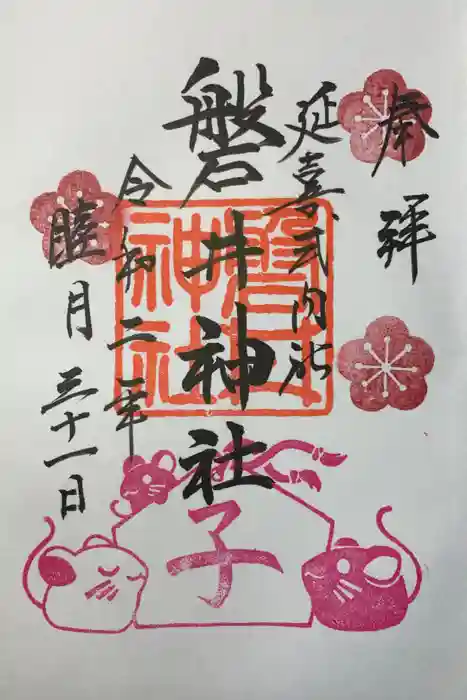 奉拝
延喜式内社
磐井神社
磐井神社
令和二年
睦月三十一日
子